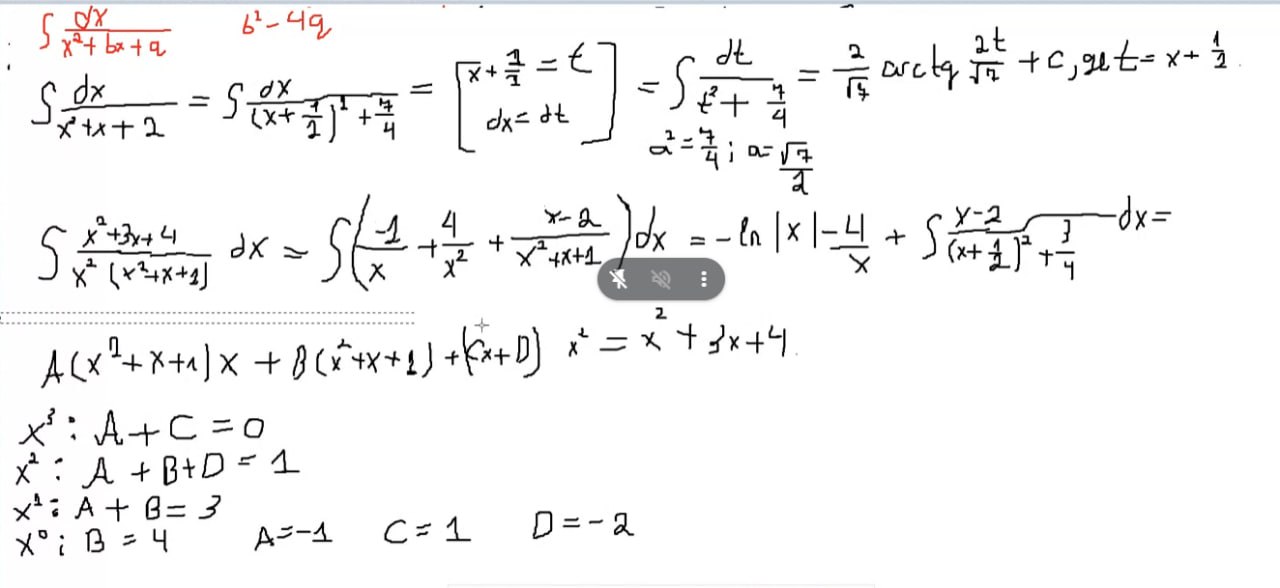 ∫ dx/(x²+bx+q) b²-4q
∫ dx/(x²+x+2) = ∫ dx/((x+1/2)²+7/4) = [x+1/2=t dx=dt] = ∫ dt/(t²+7/4) = 2/√7 arctg 2t/√7 + C, де t=x+1/2
a²=7/4; a=√7/2
∫ (x²+3x+4)/(x²(x²+x+1)) dx = ∫(-1/x + 4/x² + (x-2)/(x²+x+1))dx = -ln|x| - 4/x + ∫ (x-2)/((x+1/2)²+3/4) dx =
A(x²+x+1)x + B(x²+x+1) + (Cx+D) x² = x²+3x+4
x³: A+C=0
x²: A+B+D=1
x¹: A+B=3
x⁰: B=4 A=-1 C=1 D=-2